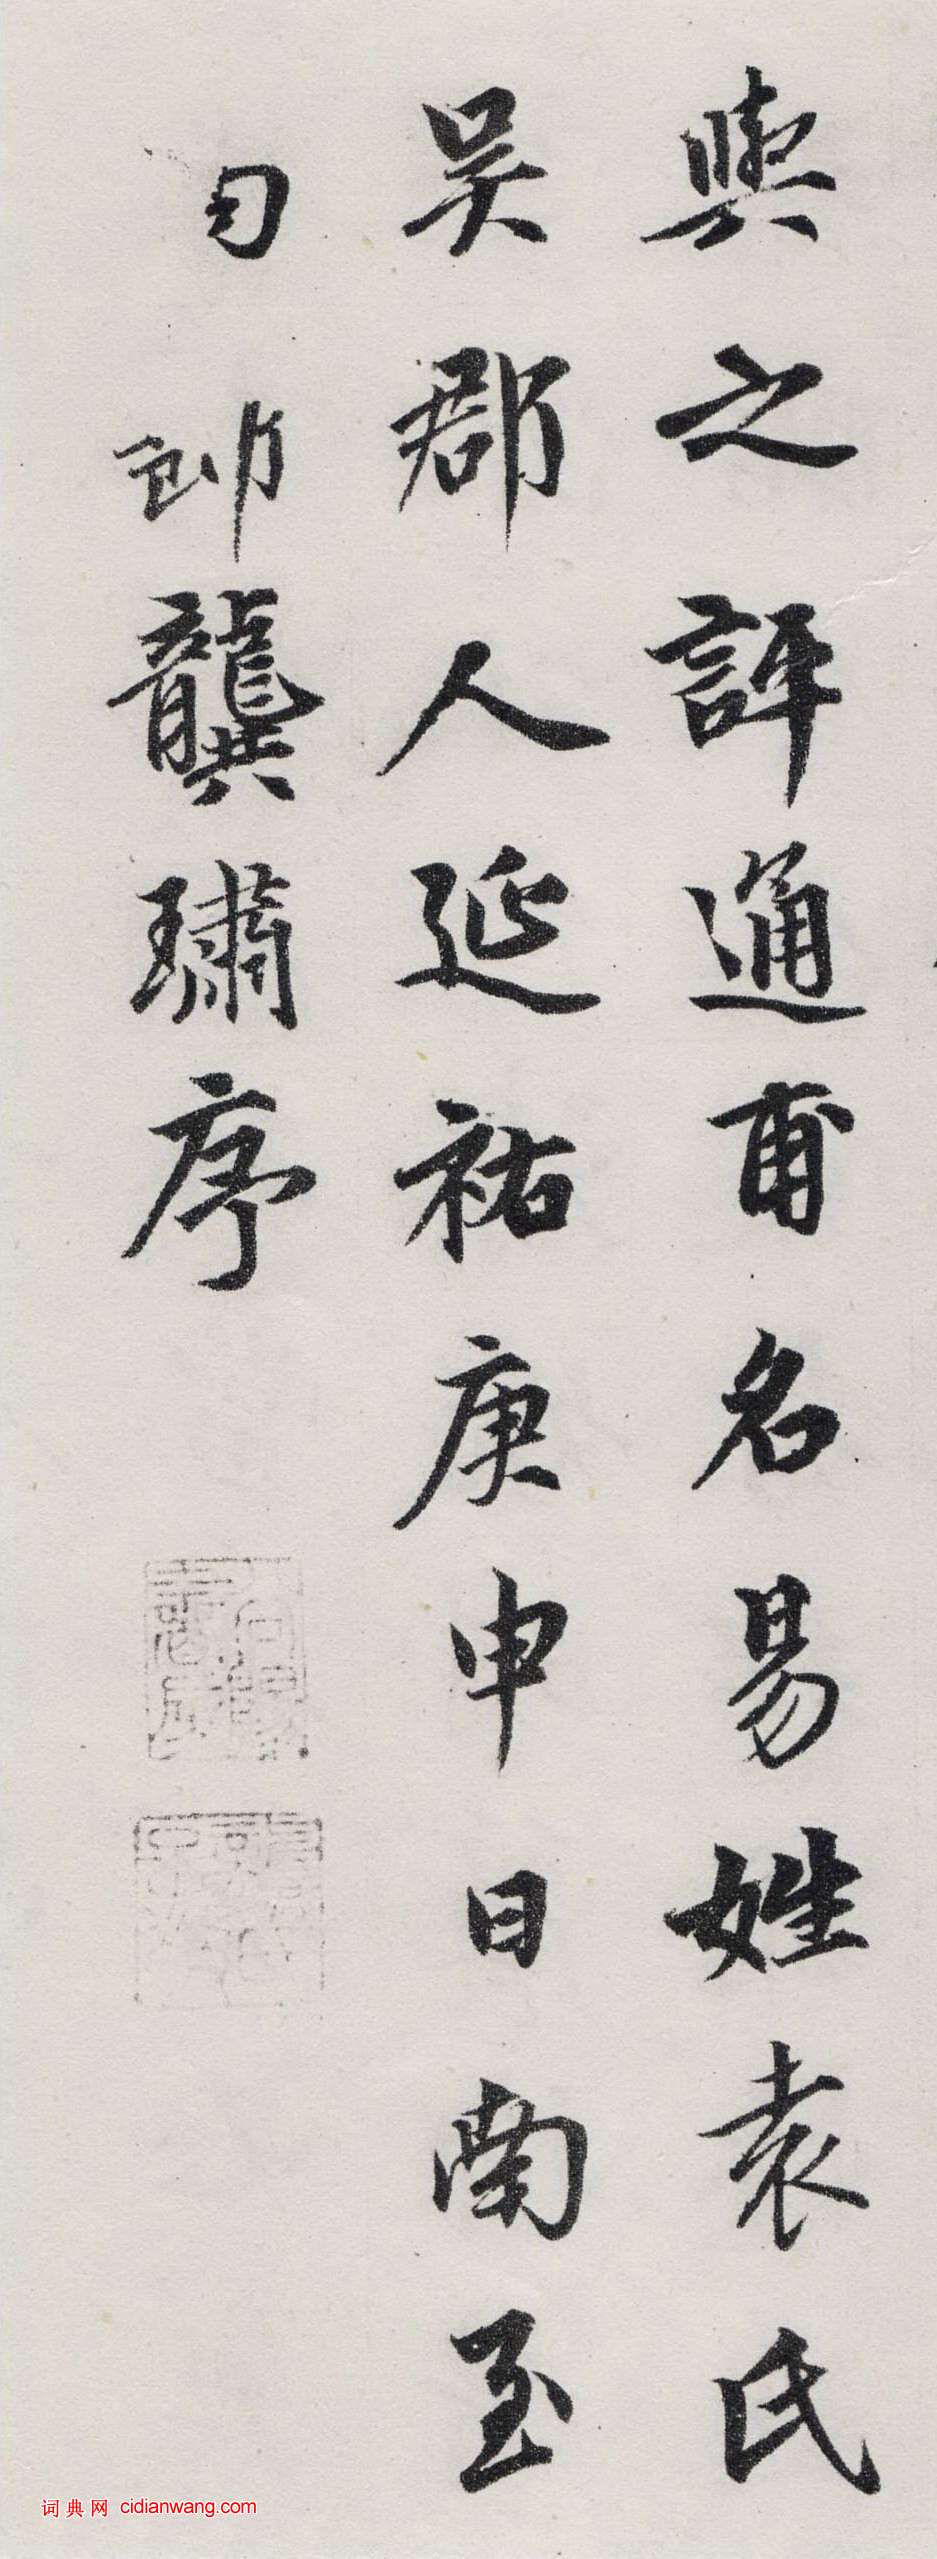 與之評通甫名易姓袁氏
吳郡人延祐庚申日南至
龔璛序
词典网 cidianwang.com